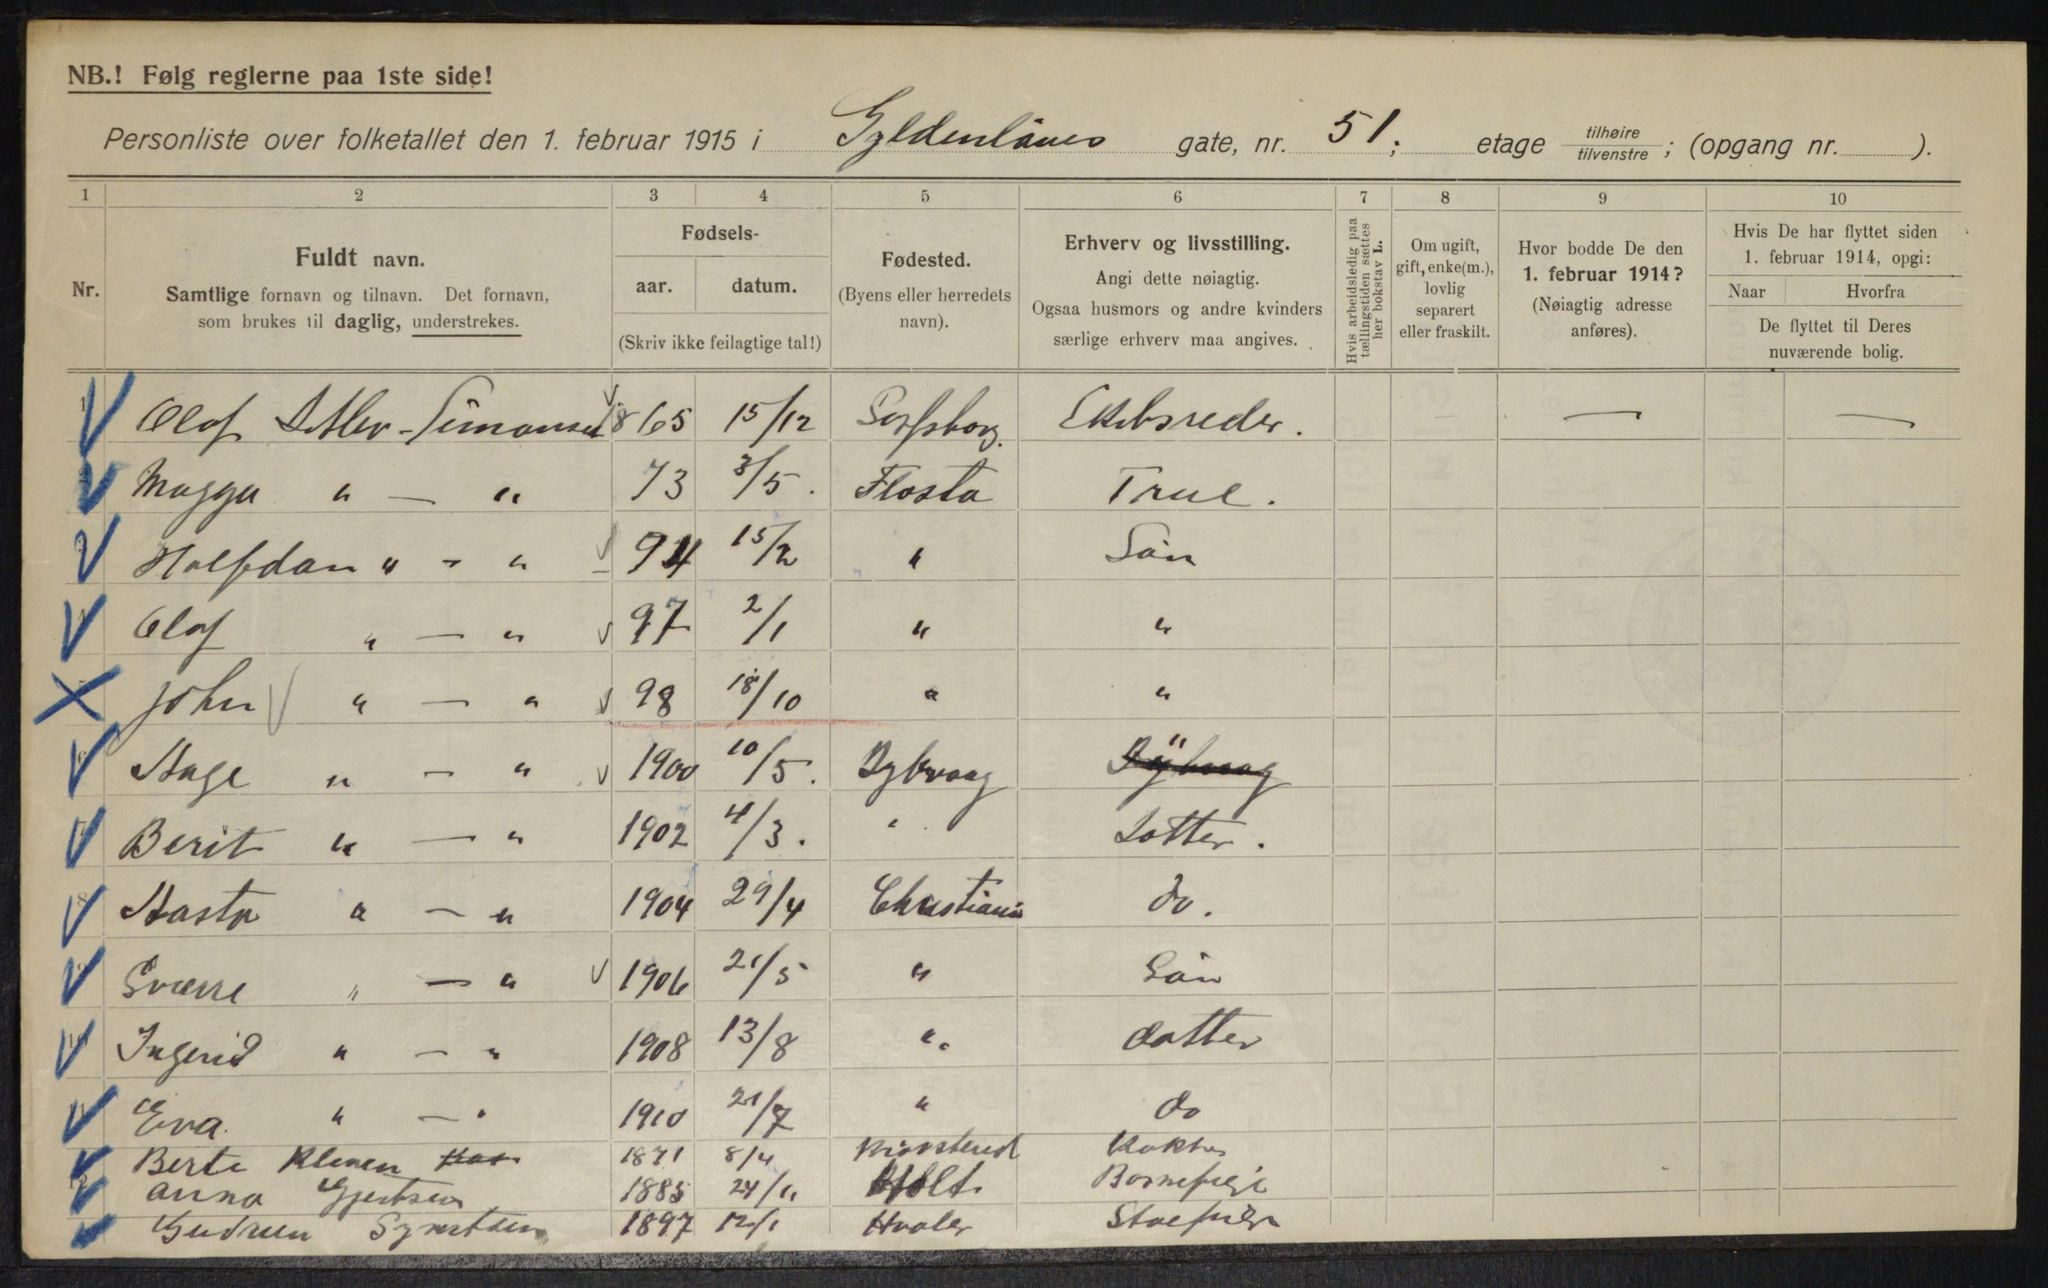 NB.! Følg reglerne paa 1ste side!
Personliste over folketallet den 1. februar 1915 i Gyldenløves gate, nr. 51; etage tilhøire tilvenstre ; (opgang nr. ).
1 2 3 4 5 6 7 8 9 10
Nr.
Fuldt navn.
Samtlige fornavn og tilnavn. Det fornavn,
som brukes til daglig, understrekes.
Fødsels-
aar. datum.
(Skriv ikke feilagtige tal!)
Fødested.
(Byens eller herredets
navn).
Erhverv og livsstilling.
Angi dette nøiagtig.
Ogsaa husmors og andre kvinders
særlige erhverv maa angives.
Hvis arbeidsledig paa
tællingstiden sættes
her bokstav L.
Om ugift,
gift, enke(m.),
lovlig
separert
eller fraskilt.
Hvor bodde De den
1. februar 1914?
(Nøiagtig adresse
anføres).
Hvis De har flyttet siden
1. februar 1914, opgi:
Naar Hvorfra
De flyttet til Deres
nuværende bolig.
Olaf Ditlev-Simonsen 1865 15/12 Porsgrunn Skibsreder. — —
Magga " — " 73 3/5. Flosta Frue.
Halfdan " - " 94 15/2 " Søn
Olaf " — " 97 2/1 " "
John " — " 98 18/10 " "
Aage " — " 1900 10/5. Dybvaag " Dybvaag
Berit " — " 1902 4/3. " Dotter.
Aasta " — " 1904 29/4 Christiania do.
Sverre " — " 1906 21/5 " Søn
Ingerid " — " 1908 13/8 " datter
Eva " — " 1910 21/7 " do
Berte 1871 8/4 Kokke
Anna Gjertsen 1885 24/11 Holt. Barnepige
Gudrun Syvertsen 1897 12/1 Hvaler Stuepige